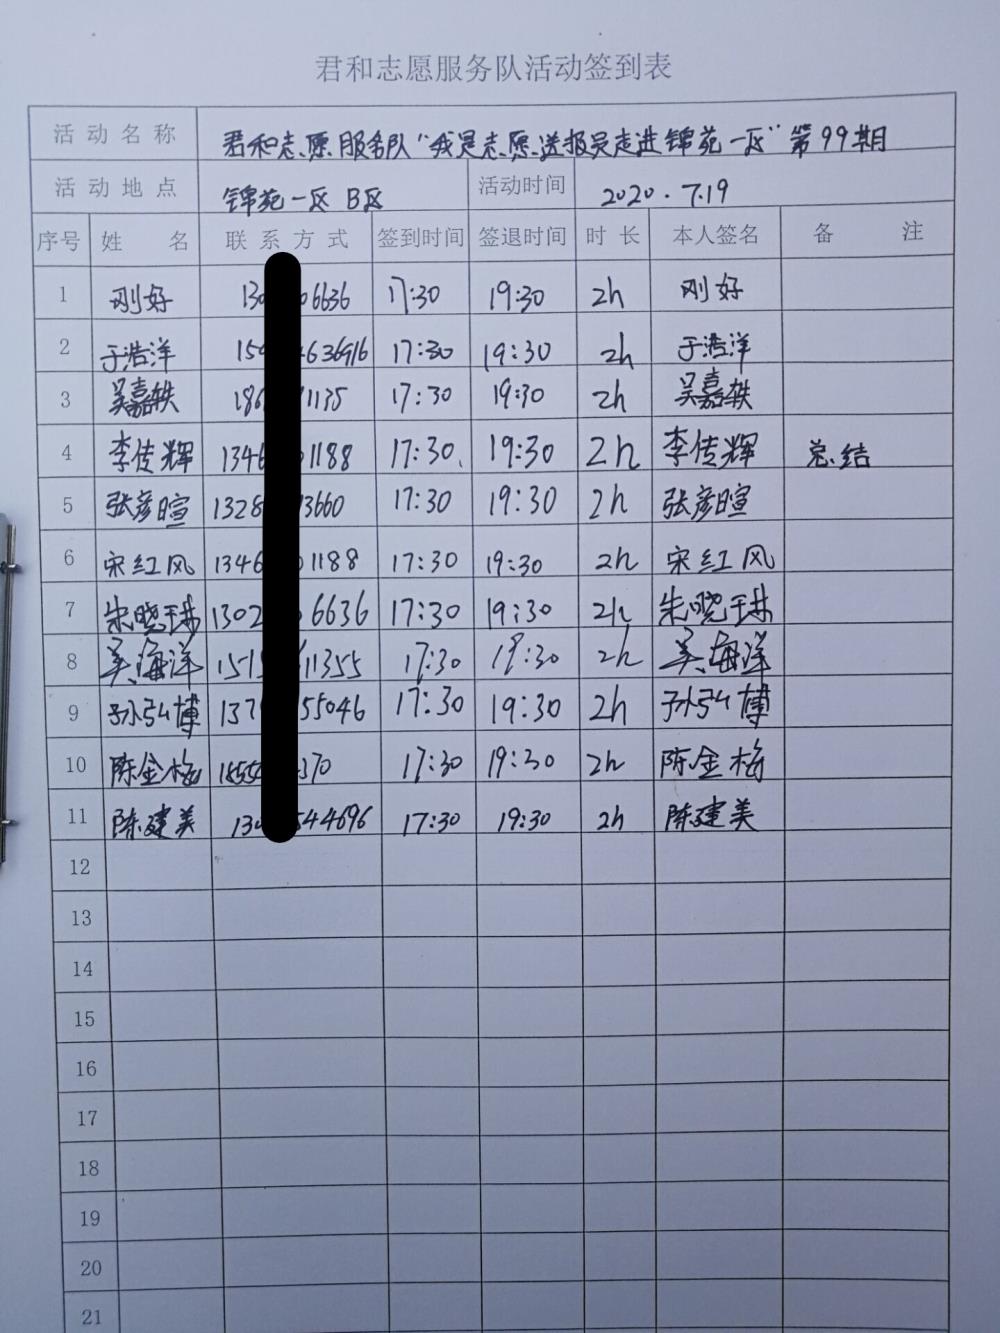 君和志愿服务队活动签到表
活动名称 君和志愿服务队“我是志愿送报员走进锦苑一区”第99期
活动地点 锦苑一区 B区 活动时间 2020.7.19
序号 姓名 联系方式 签到时间 签退时间 时长 本人签名 备注
1 刚好 130 06636 17:30 19:30 2h 刚好
2 于浩洋 17:30 19:30 2h 于浩洋
3 吴嘉轶 186 1135 17:30 19:30 2h 吴嘉轶
4 李传辉 1346 01188 17:30 19:30 2h 李传辉 总结
5 张彦暄 1328 3660 17:30 19:30 2h 张彦暄
6 宋红风 1346 01188 17:30 19:30 2h 宋红风
7 朱晓琳 1302 6636 17:30 19:30 2h 朱晓琳
8 吴海洋 1515 11355 17:30 19:30 2h 吴海洋
9 孙弘博 137 55046 17:30 19:30 2h 孙弘博
10 陈金梅 370 17:30 19:30 2h 陈金梅
11 陈建美 130 544696 17:30 19:30 2h 陈建美
12
13
14
15
16
17
18
19
20
21